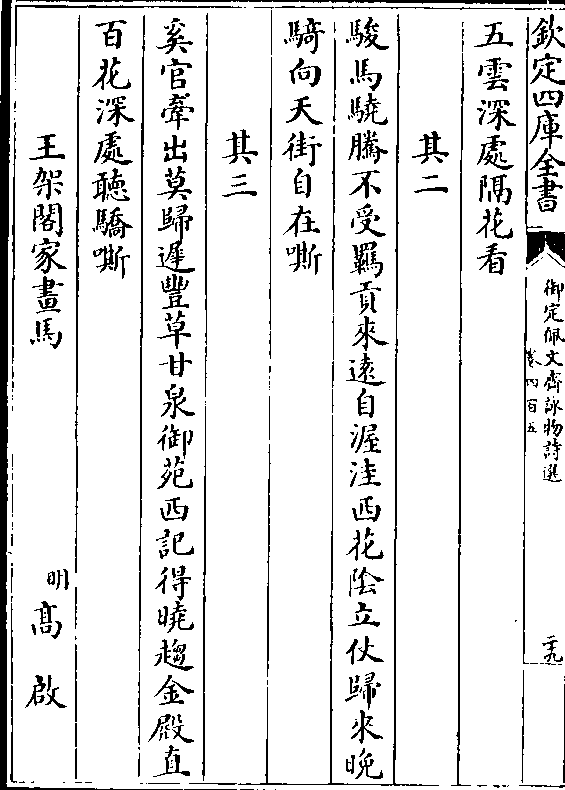 欽定四庫全書
御定佩文齋詠物詩選
卷四百五
二九
五雲深處隔花看
其二
駿馬驍騰不受羈貢來遠自渥洼西花陰立仗歸來晚
騎向天街自在嘶
其三
奚官牽出莫歸遲豐草甘泉御苑西記得曉趨金殿直
百花深處聽驕嘶
王架閣家畫馬
明
高啟